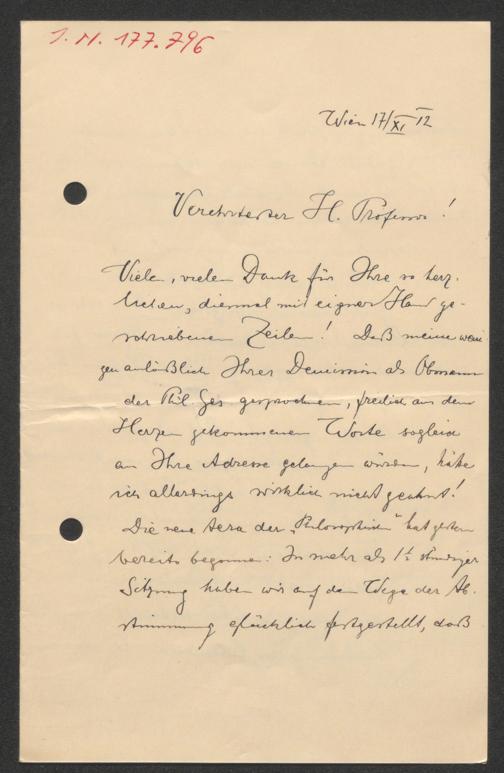 J. N. 177.796
Wien 17/XI 12
Verehrtester H. Professor!
Vielen, vielen Dank für Ihre so herz-
lichen, diesmal mit eigner Hand ge-
schriebenen Zeilen! Daß meine weni
gen anläßlich Ihrer Demission als Obmann
der Phil Ges. gesprochnen, freilich aus dem
Herzen gekommenen Worte sogleich
an Ihre Adresse gelangen würden, hätte
ich allerdings wirklich nicht geahnt!
Die neue Aera der „Philosophischen" hat gestern
bereits begonnen: In mehr als 1½ stündiger
Sitzung haben wir auf dem Wege der Ab-
stimmung glücklich festgestellt, daß